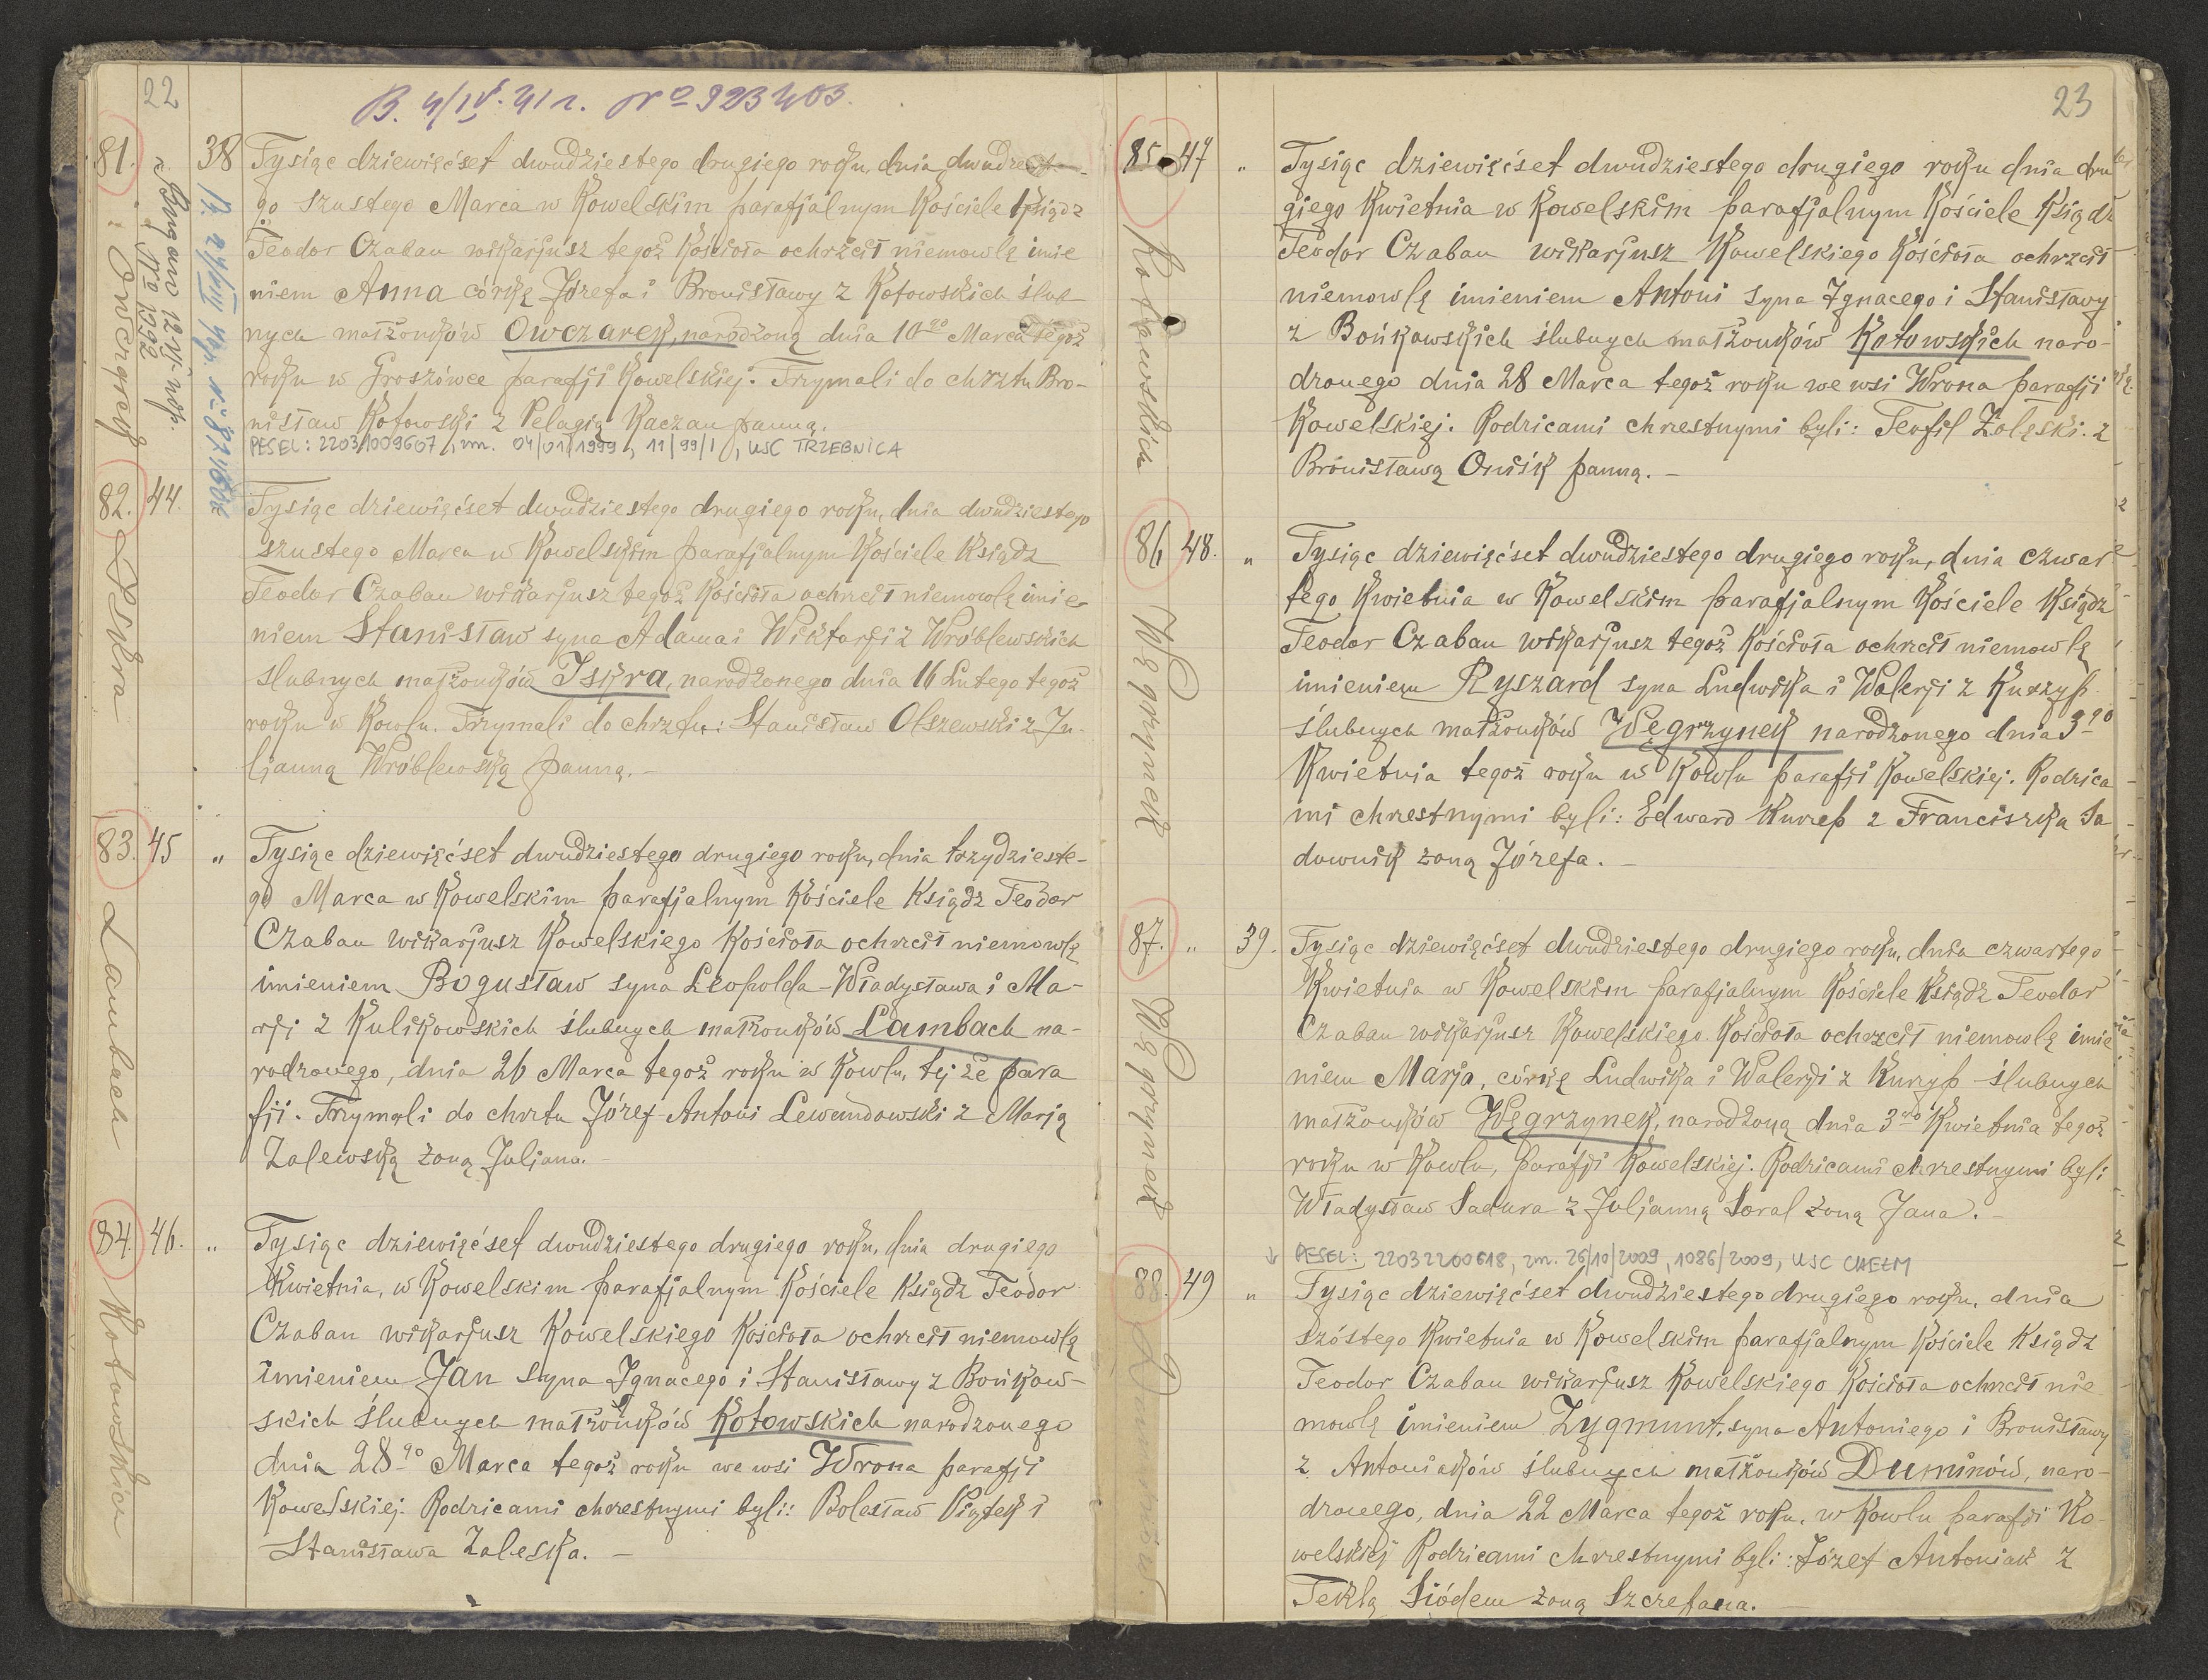 22
B. 4/IV. 41 r. No 923403.
81.
38
Owczarek
Tysiąc dziewięćset dwudziestego drugiego roku, dnia dwudzieste-
go szustego Marca w Kowelskim parafjalnym Kościele Ksiądz
Teodor Czaban wikarjusz tegoż Kościoła ochrzcił niemowlę imie
niem Anna córkę Józefa i Bronisławy z Kotowskich ślub-
nych małżonków Owczarek, narodzoną dnia 10go Marca tegoż
roku w Groszówce parafji Kowelskiej. Trzymali do chrztu Bro-
nisław Kotowski z Pelagią Kaczan panną.
PESEL: 22031009607, zm. 04/01/1999, 11/99/1, USC TRZEBNICA
82.
44.
Iskra
Tysiąc dziewięćset dwudziestego drugiego roku, dnia dwudziestego
szustego Marca w Kowelskim parafjalnym Kościele Ksiądz
Teodor Czaban wikarjusz tegoż Kościoła ochrzcił niemowlę imie-
niem Stanisław syna Adama i Wiktorji z Wróblewskich
ślubnych małżonków Iskra, narodzonego dnia 16 Lutego tegoż
roku w Kowlu. Trzymali do chrztu: Stanisław Olszewski z Ju-
ljanną Wróblewską panną. —
83.
45
"
Lambach
Tysiąc dziewięćset dwudziestego drugiego roku, dnia trzydzieste-
go Marca w Kowelskim parafjalnym Kościele Ksiądz Teodor
Czaban wikarjusz Kowelskiego Kościoła ochrzcił niemowlę
imieniem Bogusław syna Leopolda-Władysława i Ma-
rji z Kulikowskich ślubnych małżonków Lambach na-
rodzonego, dnia 26 Marca tegoż roku w Kowlu, tej że para
fji. Trzymali do chrztu Józef-Antoni Lewandowski z Marją
Zalewską żoną Juljana. —
84.
46.
"
Kotowskich
Tysiąc dziewięćset dwudziestego drugiego roku, dnia drugiego
Kwietnia, w Kowelskim parafjalnym Kościele Ksiądz Teodor
Czaban wikarjusz Kowelskiego Kościoła ochrzcił niemowlę
imieniem Jan syna Ignacego i Stanisławy z Bońkow-
skich ślubnych małżonków Kotowskich narodzonego
dnia 28go Marca tegoż roku we wsi Wrona parafji
Kowelskiej. Rodzicami chrzestnymi byli: Bolesław Piątek i
Stanisława Zaleska. —
23
85
47
"
Kotowskich
Tysiąc dziewięćset dwudziestego drugiego roku dnia dru
giego Kwietnia w Kowelskim parafjalnym Kościele Ksiądz
Teodor Czaban wikarjusz Kowelskiego Kościoła ochrzcił
niemowlę imieniem Antoni syna Ignacego i Stanisławy
z Bońkowskich ślubnych małżonków Kotowskich naro-
dzonego dnia 28 Marca tegoż roku we wsi Wrona parafji
Kowelskiej. Rodzicami chrzestnymi byli: Teofil Zaleski z
Bronisławą Onisik panną. —
86
48.
"
Węgrzynek
Tysiąc dziewięćset dwudziestego drugiego roku, dnia czwar
tego Kwietnia w Kowelskim parafjalnym Kościele Ksiądz
Teodor Czaban wikarjusz tegoż Kościoła ochrzcił niemowlę
imieniem Ryszard syna Ludwika i Walerji z Kurzyp
ślubnych małżonków Węgrzynek narodzonego dnia 3go
Kwietnia tegoż roku w Kowlu parafji Kowelskiej. Rodzica
mi chrzestnymi byli: Edward Kurzep z Franciszką Sa
downik żoną Józefa. —
87.
"
39.
Węgrzynek
Tysiąc dziewięćset dwudziestego drugiego roku, dnia czwartego
Kwietnia w Kowelskim parafjalnym Kościele Ksiądz Teodor
Czaban wikarjusz Kowelskiego Kościoła ochrzcił niemowlę imie
niem Marja, córkę Ludwika i Walerji z Kurzyp ślubnych
małżonków Węgrzynek, narodzoną dnia 3go Kwietnia tegoż
roku w Kowlu, parafji Kowelskiej. Rodzicami chrzestnymi byli
Władysław Sadura z Juljanną Soral żoną Jana. —
PESEL: 22032200618, zm. 26/10/2009, 1086/2009, USC CHEŁM
88.
49
"
Duminów.
Tysiąc dziewięćset dwudziestego drugiego roku, dnia
szóstego Kwietnia w Kowelskim parafjalnym Kościele Ksiądz
Teodor Czaban wikarjusz Kowelskiego Kościoła ochrzcił nie
mowlę imieniem Zygmunt, syna Antoniego i Bronisławy
z Antoniaków ślubnych małżonków Duminów, naro-
dzonego, dnia 22 Marca tegoż roku, w Kowlu parafji Ko-
welskiej Rodzicami chrzestnymi byli: Józef Antoniak z
Teklą Siódem żoną Szczepana. —